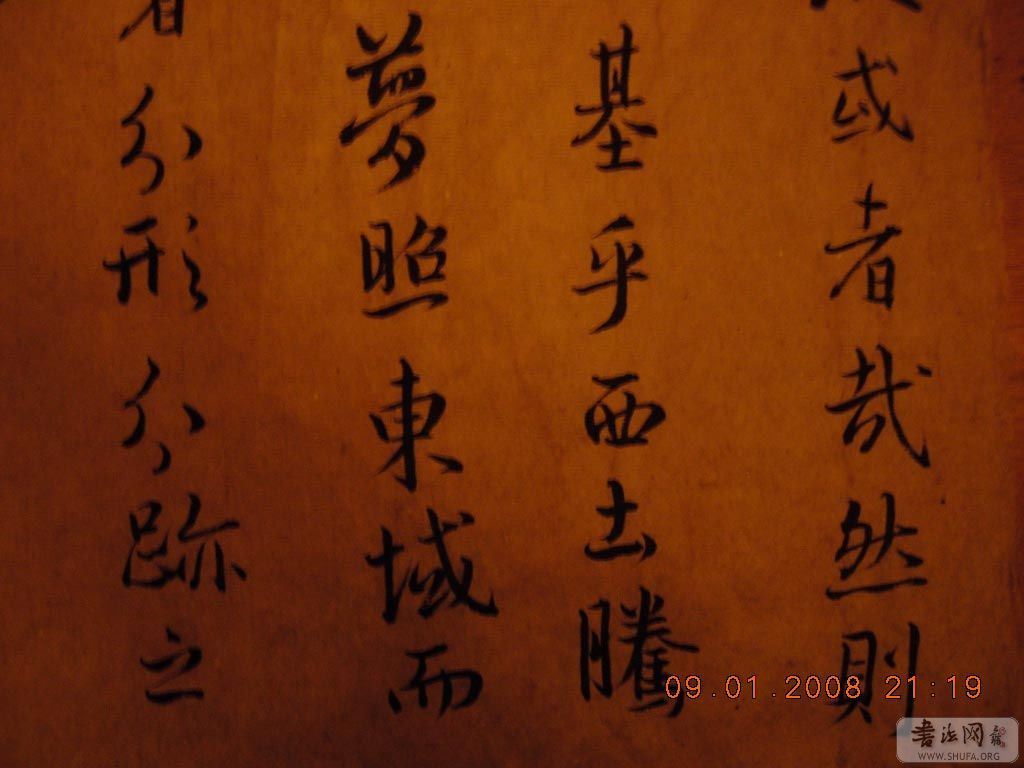 或者哉然則
基乎西土騰
夢照東域而
者分形分跡之
09.01.2008 21:19
書法网
WWW.SHUFA.ORG